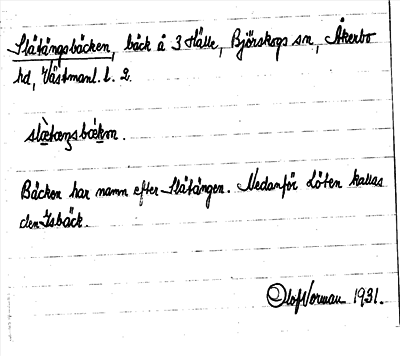 Slåtängsbäcken, bäck å 3 Hälle, Björskogs sn, Åkerbo
hd, Västmanl. l. 2.
Bäcken har namn efter Slåtängen. Nedanför Löten kallas
den Isbäck.
Olof Norman 1931.